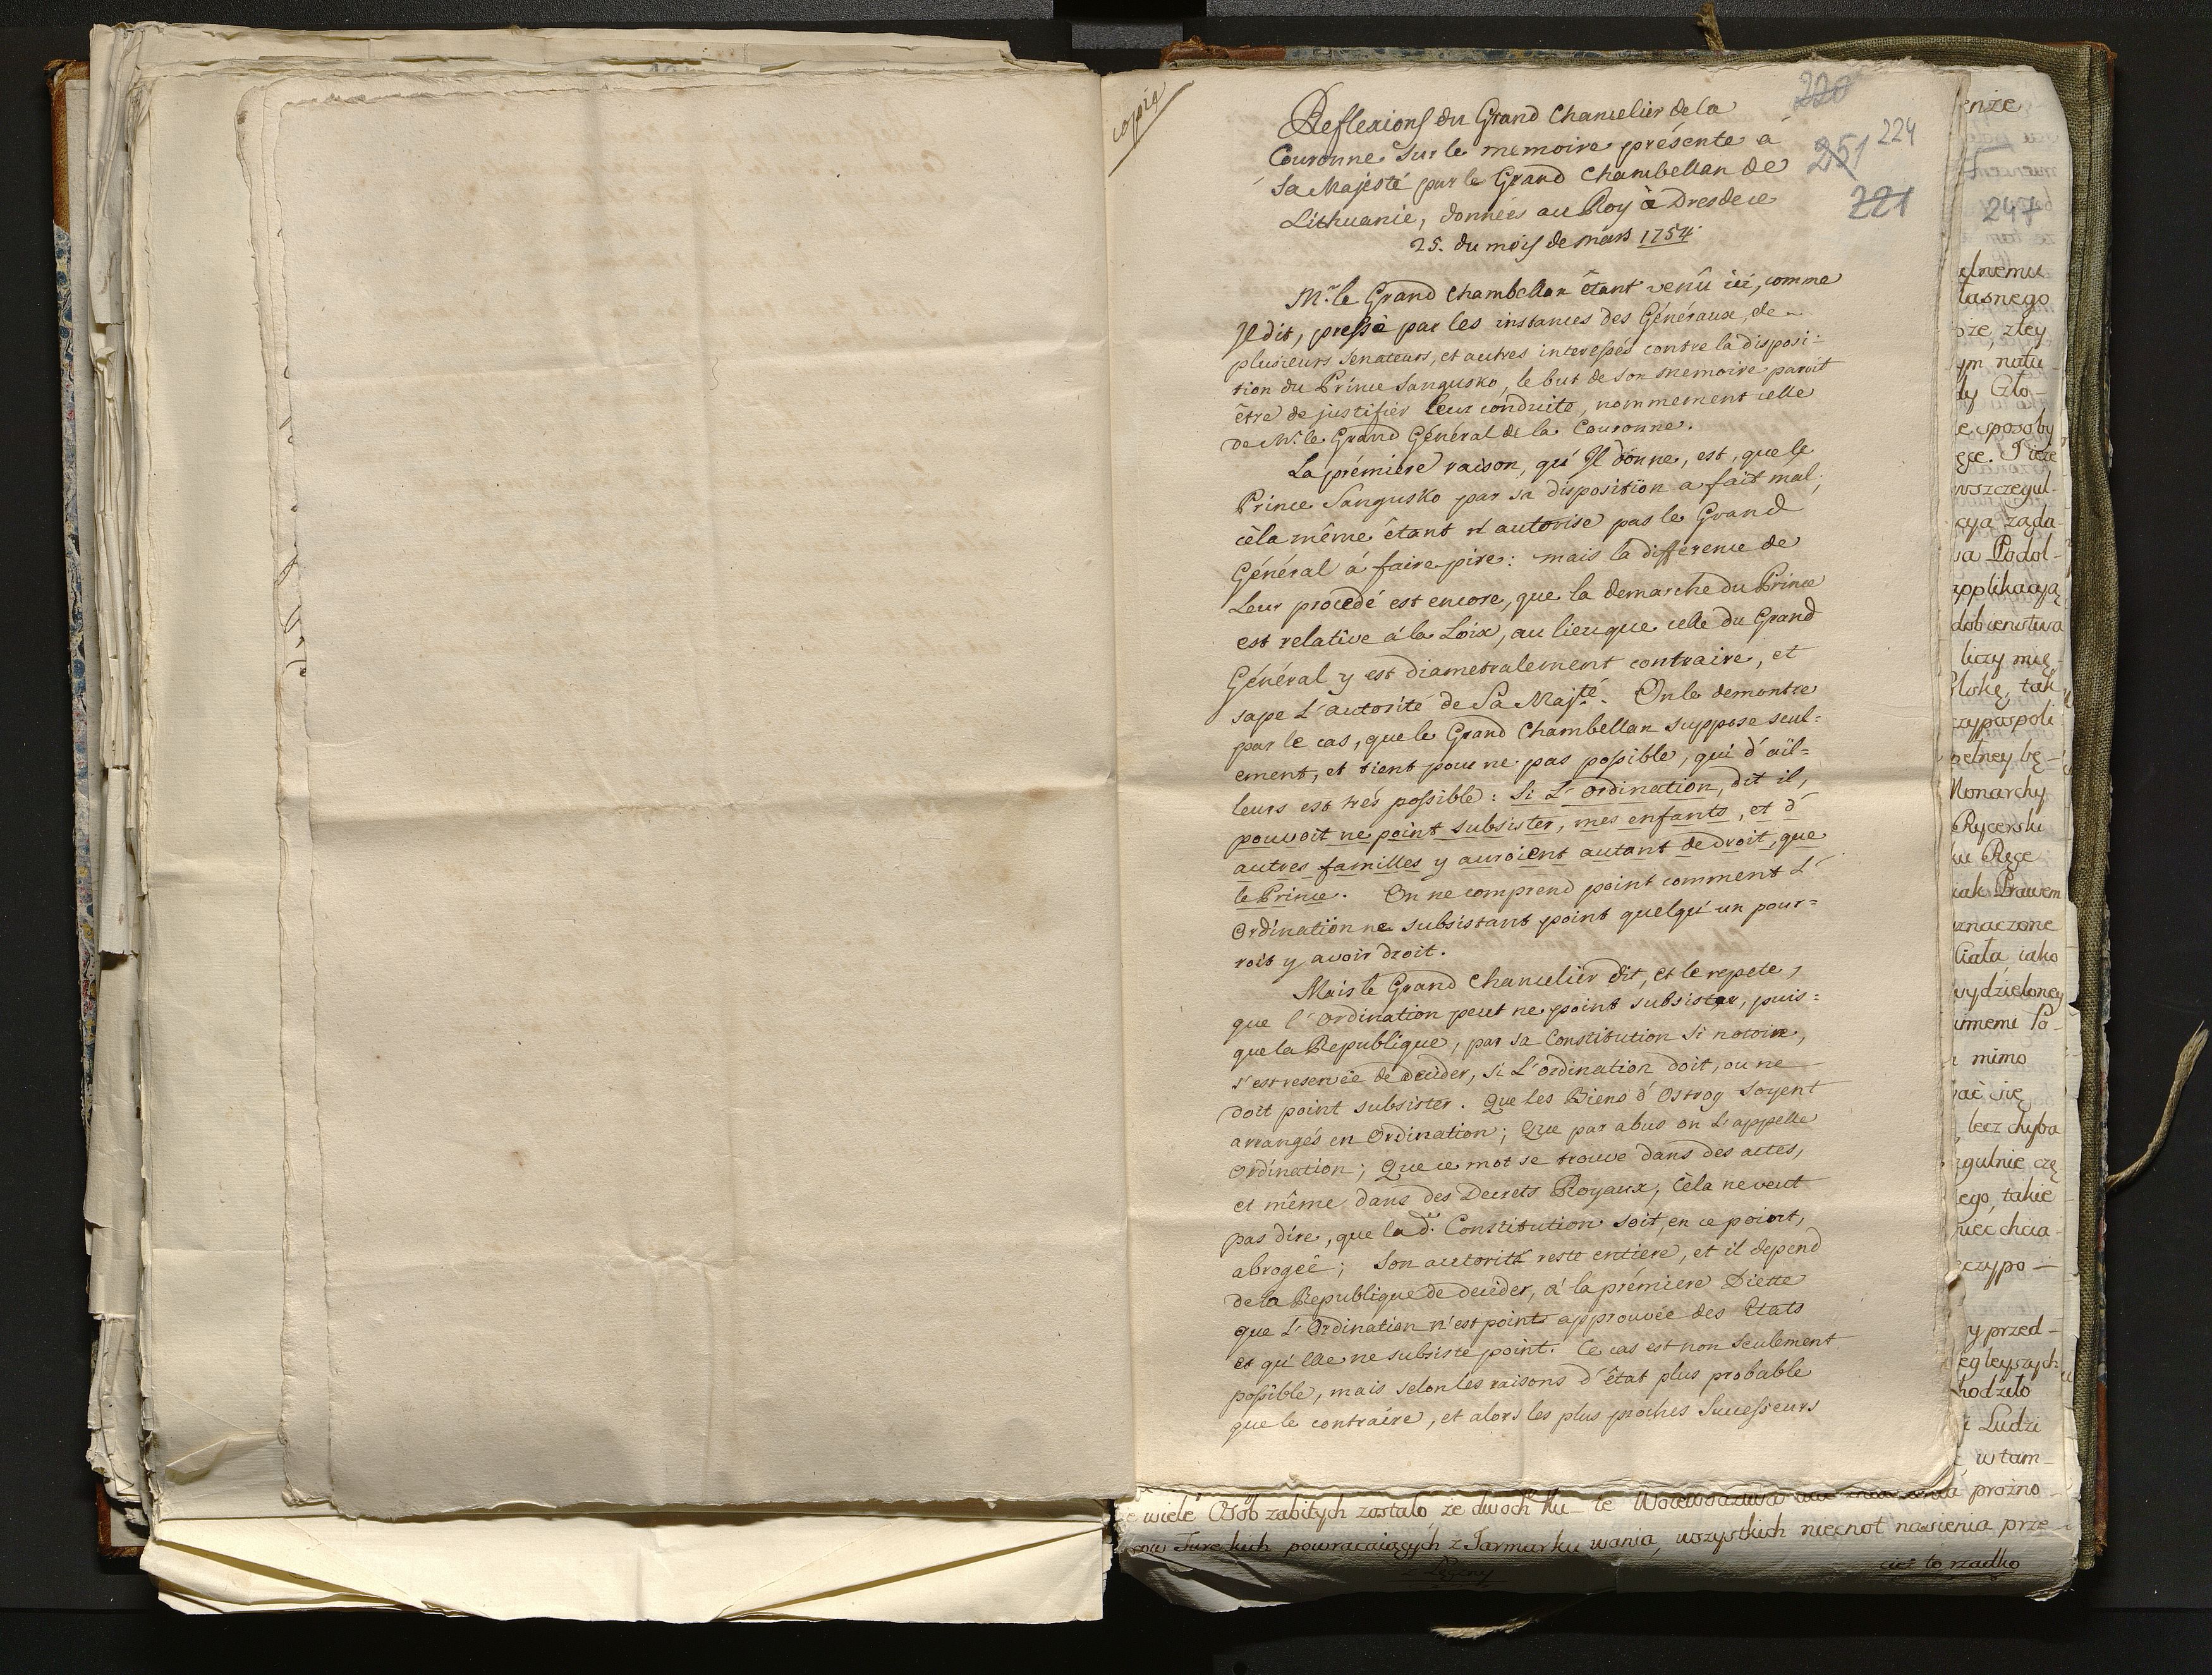 copia
220
251 224
221
Reflexions du Grand Chancelier de la
Couronne sur le memoire présenté á
Sa Majesté par le Grand Chambellan de
Lithuanie, données au Roy à Dresde ce
25. du mois de mars 1754.
Mr. le Grand Chambellan êtant venû ici, comme
Il dit, pressè par les instances des Généraux, de
plusieurs Senateurs, et autres interessés contre la disposi=
tion du Prince Sangusko, le but de son memoire paroit
être de justifier leur conduite, nommement celle
de Mr. le Grand Général de la Couronne.
La prémiere raison, qu'Il donne, est, que le
Prince Sangusko par sa disposition a fait mal;
cèla même êtant n'autorise pas le Grand
Général á faire pire: mais la difference de
Leur procedé est encore, que la demarche du Prince
est relative á la Loix, au lieu que celle du Grand
Général y est diametralement contraire, et
sape L'autorité de Sa Majté. On le demontre
par le cas, que le Grand Chambellan suppose seul=
ement, et tient pour ne pas possible, qui d'ail=
leurs est trés possible: Si L'ordination, dit il,
pouvoit ne point subsister, mes enfants, et d'
autres familles y auroient autant de droit, que
le Prince. On ne comprend point comment L'
Ordination ne subsistant point quelqu'un pour=
roit y avoir droit.
Mais le Grand Chancelier dit, et le repete,
que l'Ordination peut ne point subsister, puis=
que la Republique, par sa Constitution si notoire,
s'est reservée de decider, si L'ordination doit, ou ne
doit point subsister. Que les Biens d'Ostrog soyent
arrangés en Ordination; Que par abus on L'appelle
Ordination; Que ce mot se trouve dans des actes,
et même dans des Decrets Royaux; Cèla ne veut
pas dire, que la de. Constitution soit, en ce point,
abrogée; Son autorité reste entiere, et il depend
de la Republique de decider, á la prémiere Diette
que L'Ordination n'est point approuvée des Etats
et qu'elle ne subsiste point. Ce cas est non seulement
possible, mais selon les raisons d'êtat plus probable
que le contraire, et alors les plus proches Successeurs
enże
247
ednemu
łasnego
oże, zley
ym natu-
dy Gło-
e sposoby
wszczegul-
cya zada-
va Podol-
applikacyą
dobienstwa
liczy mię-
tak
zypospoli
pelney bę-
Monarchy
Rycersku
Ręce
iak Prawem
znaczone
Ciała iako
wydzieloney
mimo
ać się
lecz chyba
gulnie
ego, takie
chcia-
czypo-
y przed-
hodziło
i Ludzi
w tam-
wiele Osób zabitych zostało, że dwoch Ku- te Woiewodztwa prozno
pow Tureckich powracaiących z Jarmarku wania, wszystkich niecnot nasienia prze-
cież to rzadko